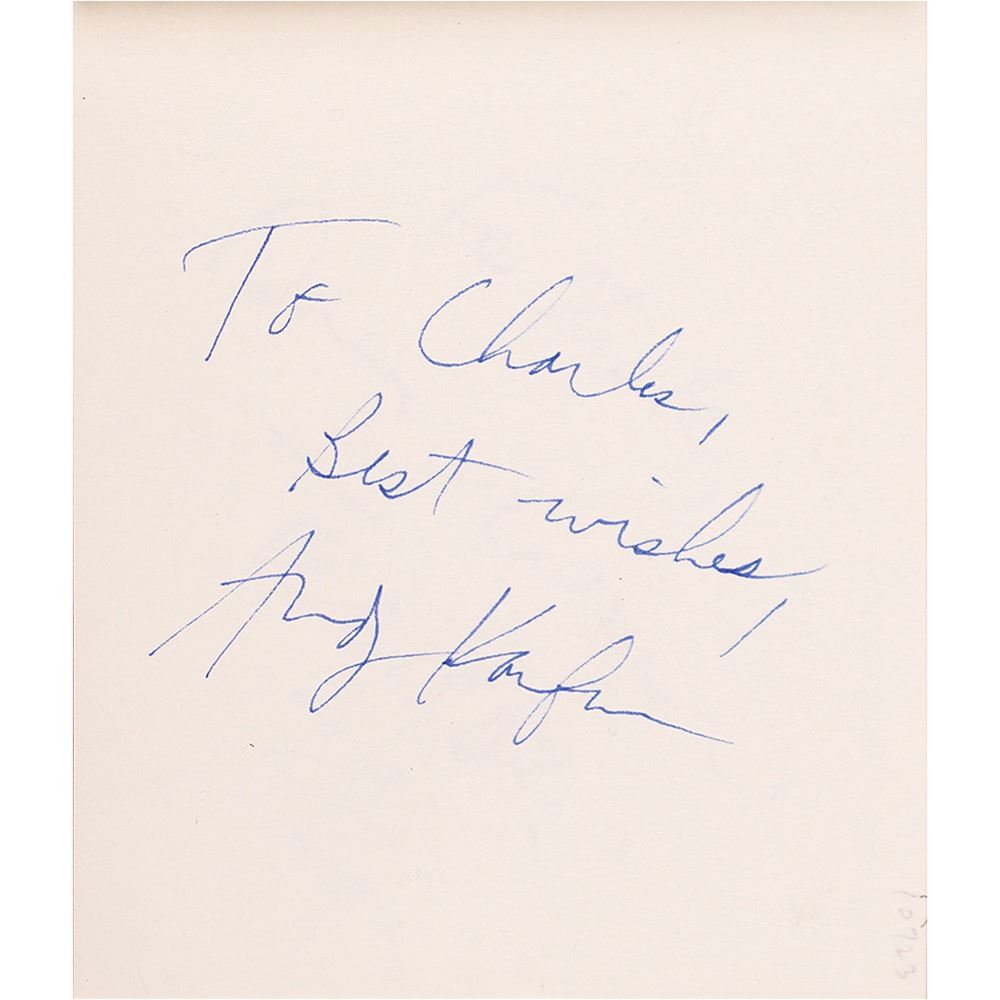 To Charles,
Best wishes,
Andy Kaufman